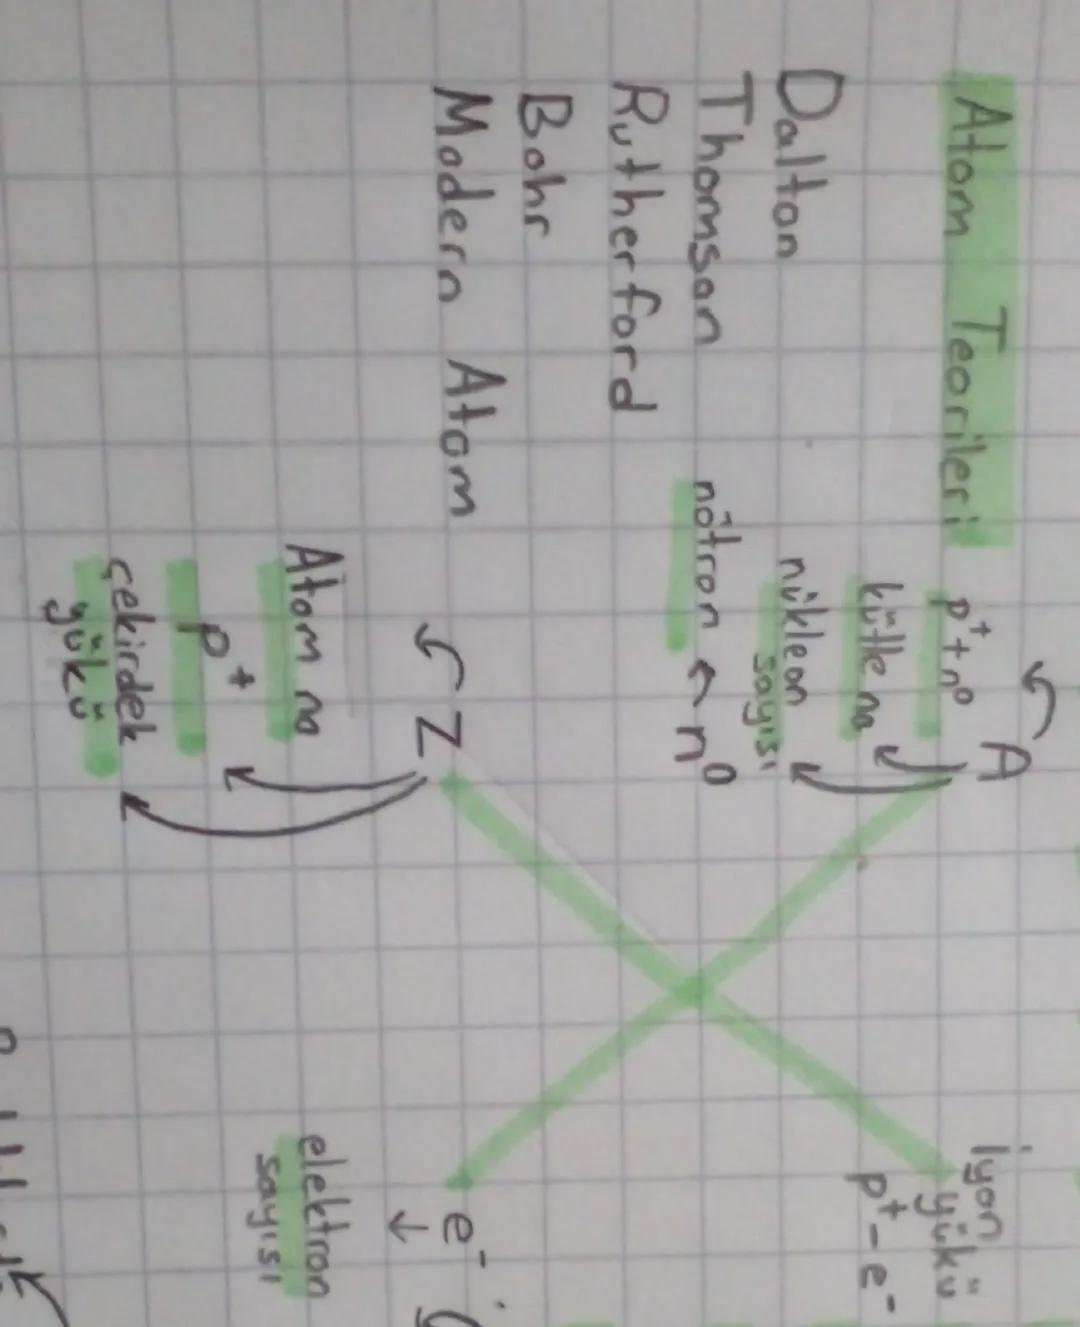 Atom Teorileri
Dalton
Thomson
Rutherford
Bohr
Modern Atom
A
p⁺+n⁰
kütle no
nükleon
sayısı
nötron ← n⁰
Z
Atom no
p⁺
çekirdek
yükü
iyon
yükü
p⁺-e⁻
e⁻
elektron
sayısı